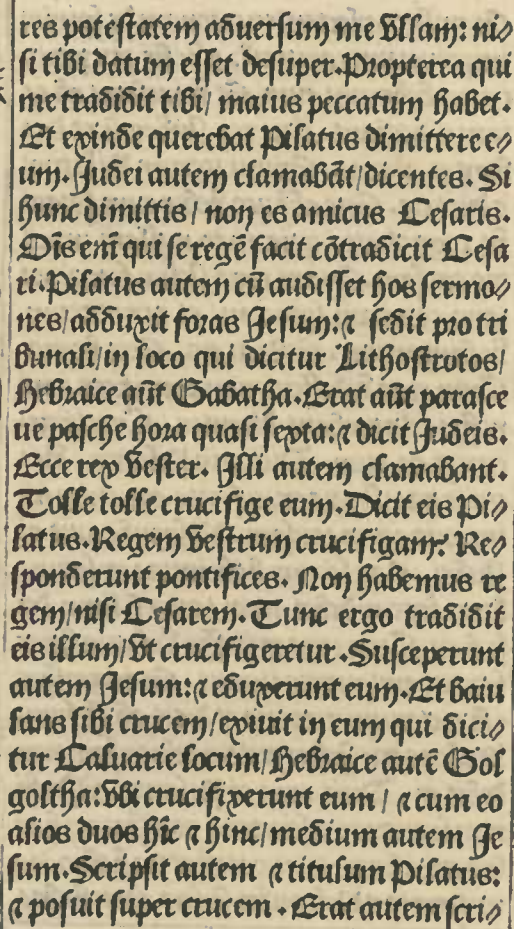 res poteſtatem aduerſum me vllam: ni⸗
ſi tibi datum eſſet deſuper. Propterea qui
me tradidit tibi/ maius peccatum habet.
Et exinde querebat Pilatus dimittere e⸗
um. Judei autem clamabāt/ dicentes. Si
hunc dimittis/ non es amicus Ceſaris.
Oīs enī qui ſe regē facit cōtradicit Ceſa
ri. Pilatus autem cū audiſſet hos ſermo⸗
nes/ adduxit foras Jeſum: ⁊ ſedit pro tri
bunali/ in loco qui dicitur Lithoſtrotos/
Hebraice aūt Gabatha. Erat aūt paraſce
ue paſche hora quaſi ſexta: ⁊ dicit Judeis.
Ecce rex veſter. Illi autem clamabant.
Tolle tolle crucifige eum. Dicit eis Pi⸗
latus. Regem veſtrum crucifigam? Re⸗
ſponderunt pontifices. Non habemus re
gem/ niſi Ceſarem. Tunc ergo tradidit
eis illum/ vt crucifigeretur. Suſceperunt
autem Jeſum: ⁊ eduxerunt eum. Et baiu
lans ſibi crucem/ exiuit in eum qui dici⸗
tur Caluarie locum/ Hebraice autē Gol
goltha: vbi crucifixerunt eum/ ⁊ cum eo
alios duos hīc ⁊ hinc/ medium autem Je
ſum. Scripſit autem ⁊ titulum Pilatus:
⁊ poſuit ſuper crucem. Erat autem ſcri⸗